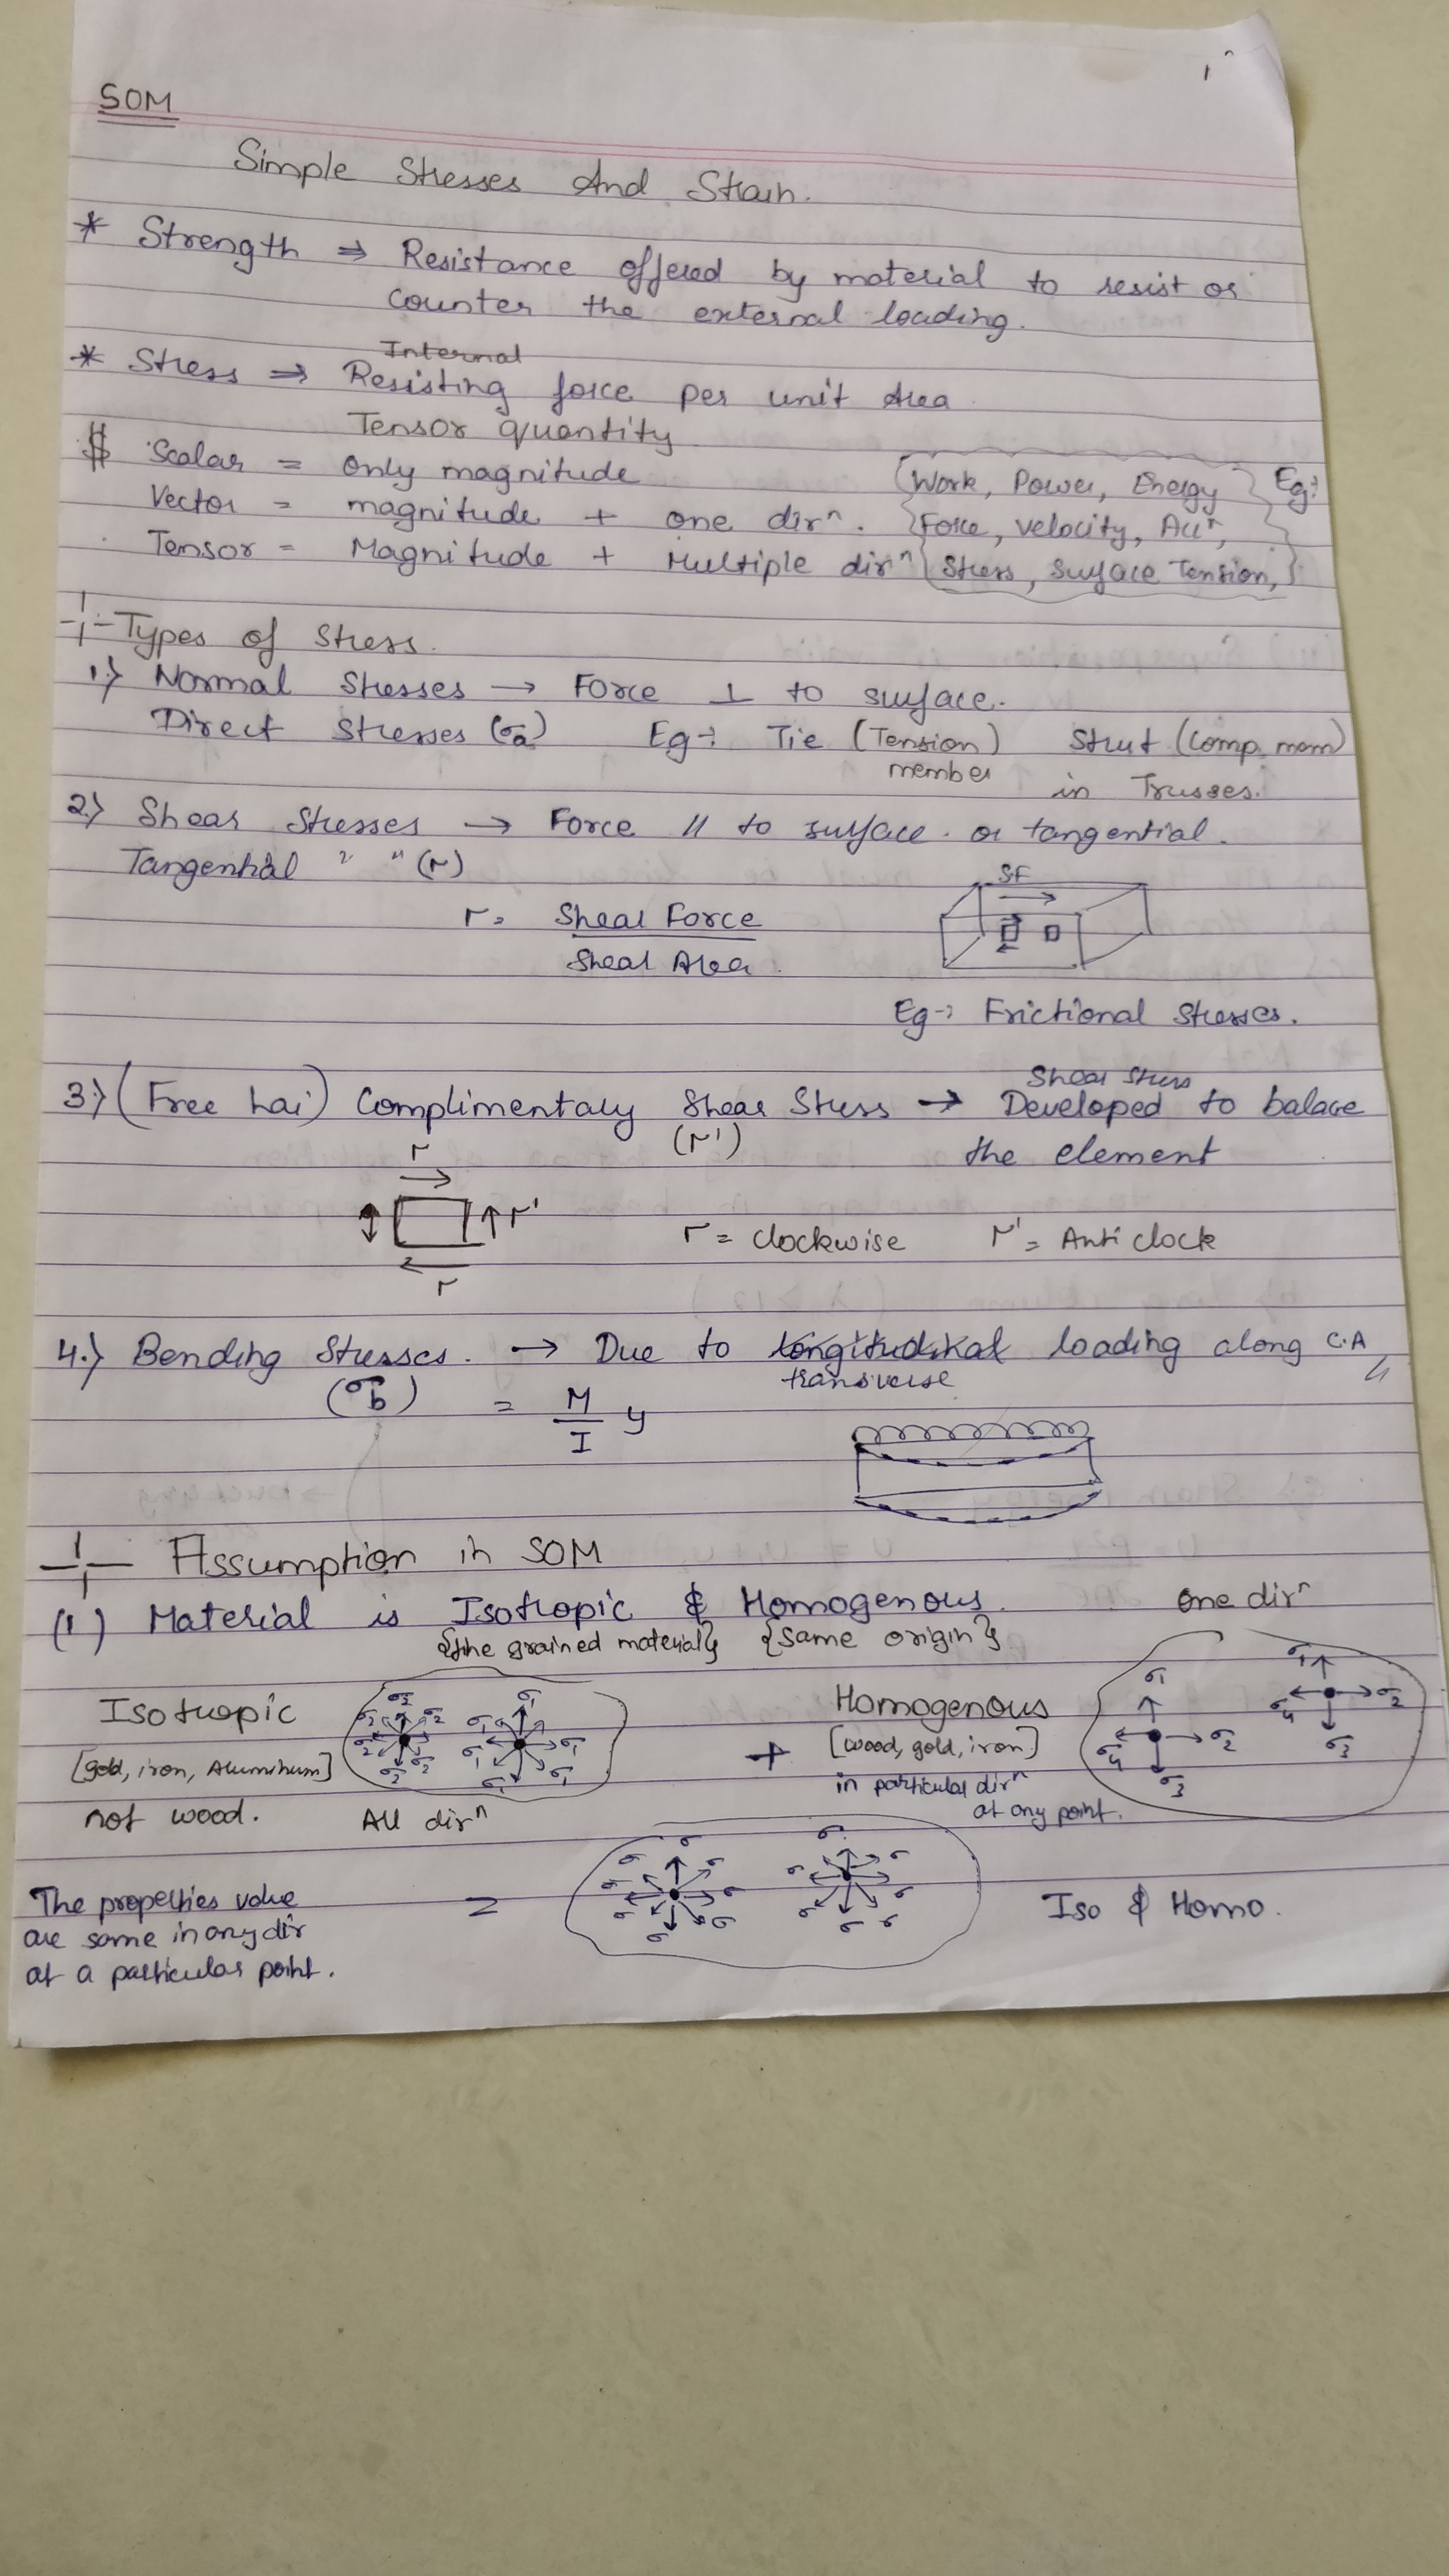 SOM
Simple Stresses And Strain.
* Strength ⇒ Resistance offered by material to resist or
counter the external loading.
Internal
* Stress ⇒ Resisting force per unit Area
Tensor quantity
$ Scalar = only magnitude (Work, Power, Energy } Eg:-
Vector = magnitude + one dirⁿ. {Force, velocity, Accⁿ,
Tensor = Magnitude + Multiple dirⁿ { Stress, Surface Tension, }
Types of Stress.
1.) Normal Stresses → Force ⊥ to surface.
Direct Stresses (σa) Eg:- Tie (Tension) Strut (Comp. mem)
member in Trusses.
2.) Shear Stresses → Force // to surface. or tangential.
Tangential " " (τ)
SF
τ = Shear Force
Shear Area
Eg-: Frictional Stresses.
Shear Stress
3.) (Free hai) Complimentary Shear Stress → Developed to balace
(τ') the element
τ
τ'
τ = clockwise τ' = Anti clock
τ
4.) Bending Stresses. → Due to longitudinal loading along C.A
transverse
(σb) = M y
I
Assumption in SOM
(1) Material is Isotropic & Homogenous. one dirⁿ
{fine grained material} {same origin}
Isotropic σ2 σ2 σ2 σ2 σ2 σ2 σ1 σ1 σ1 σ1 σ1 σ1 + Homogenous σ1 σ2 σ3 σ4 σ1 σ2 σ3 σ4
[gold, iron, Aluminum] [wood, gold, iron]
not wood. All dirⁿ in particular dirⁿ
at any point.
The properties value = σ σ σ σ σ σ σ σ σ σ σ σ σ σ σ Iso & Homo.
are same in any dir
at a particular point.